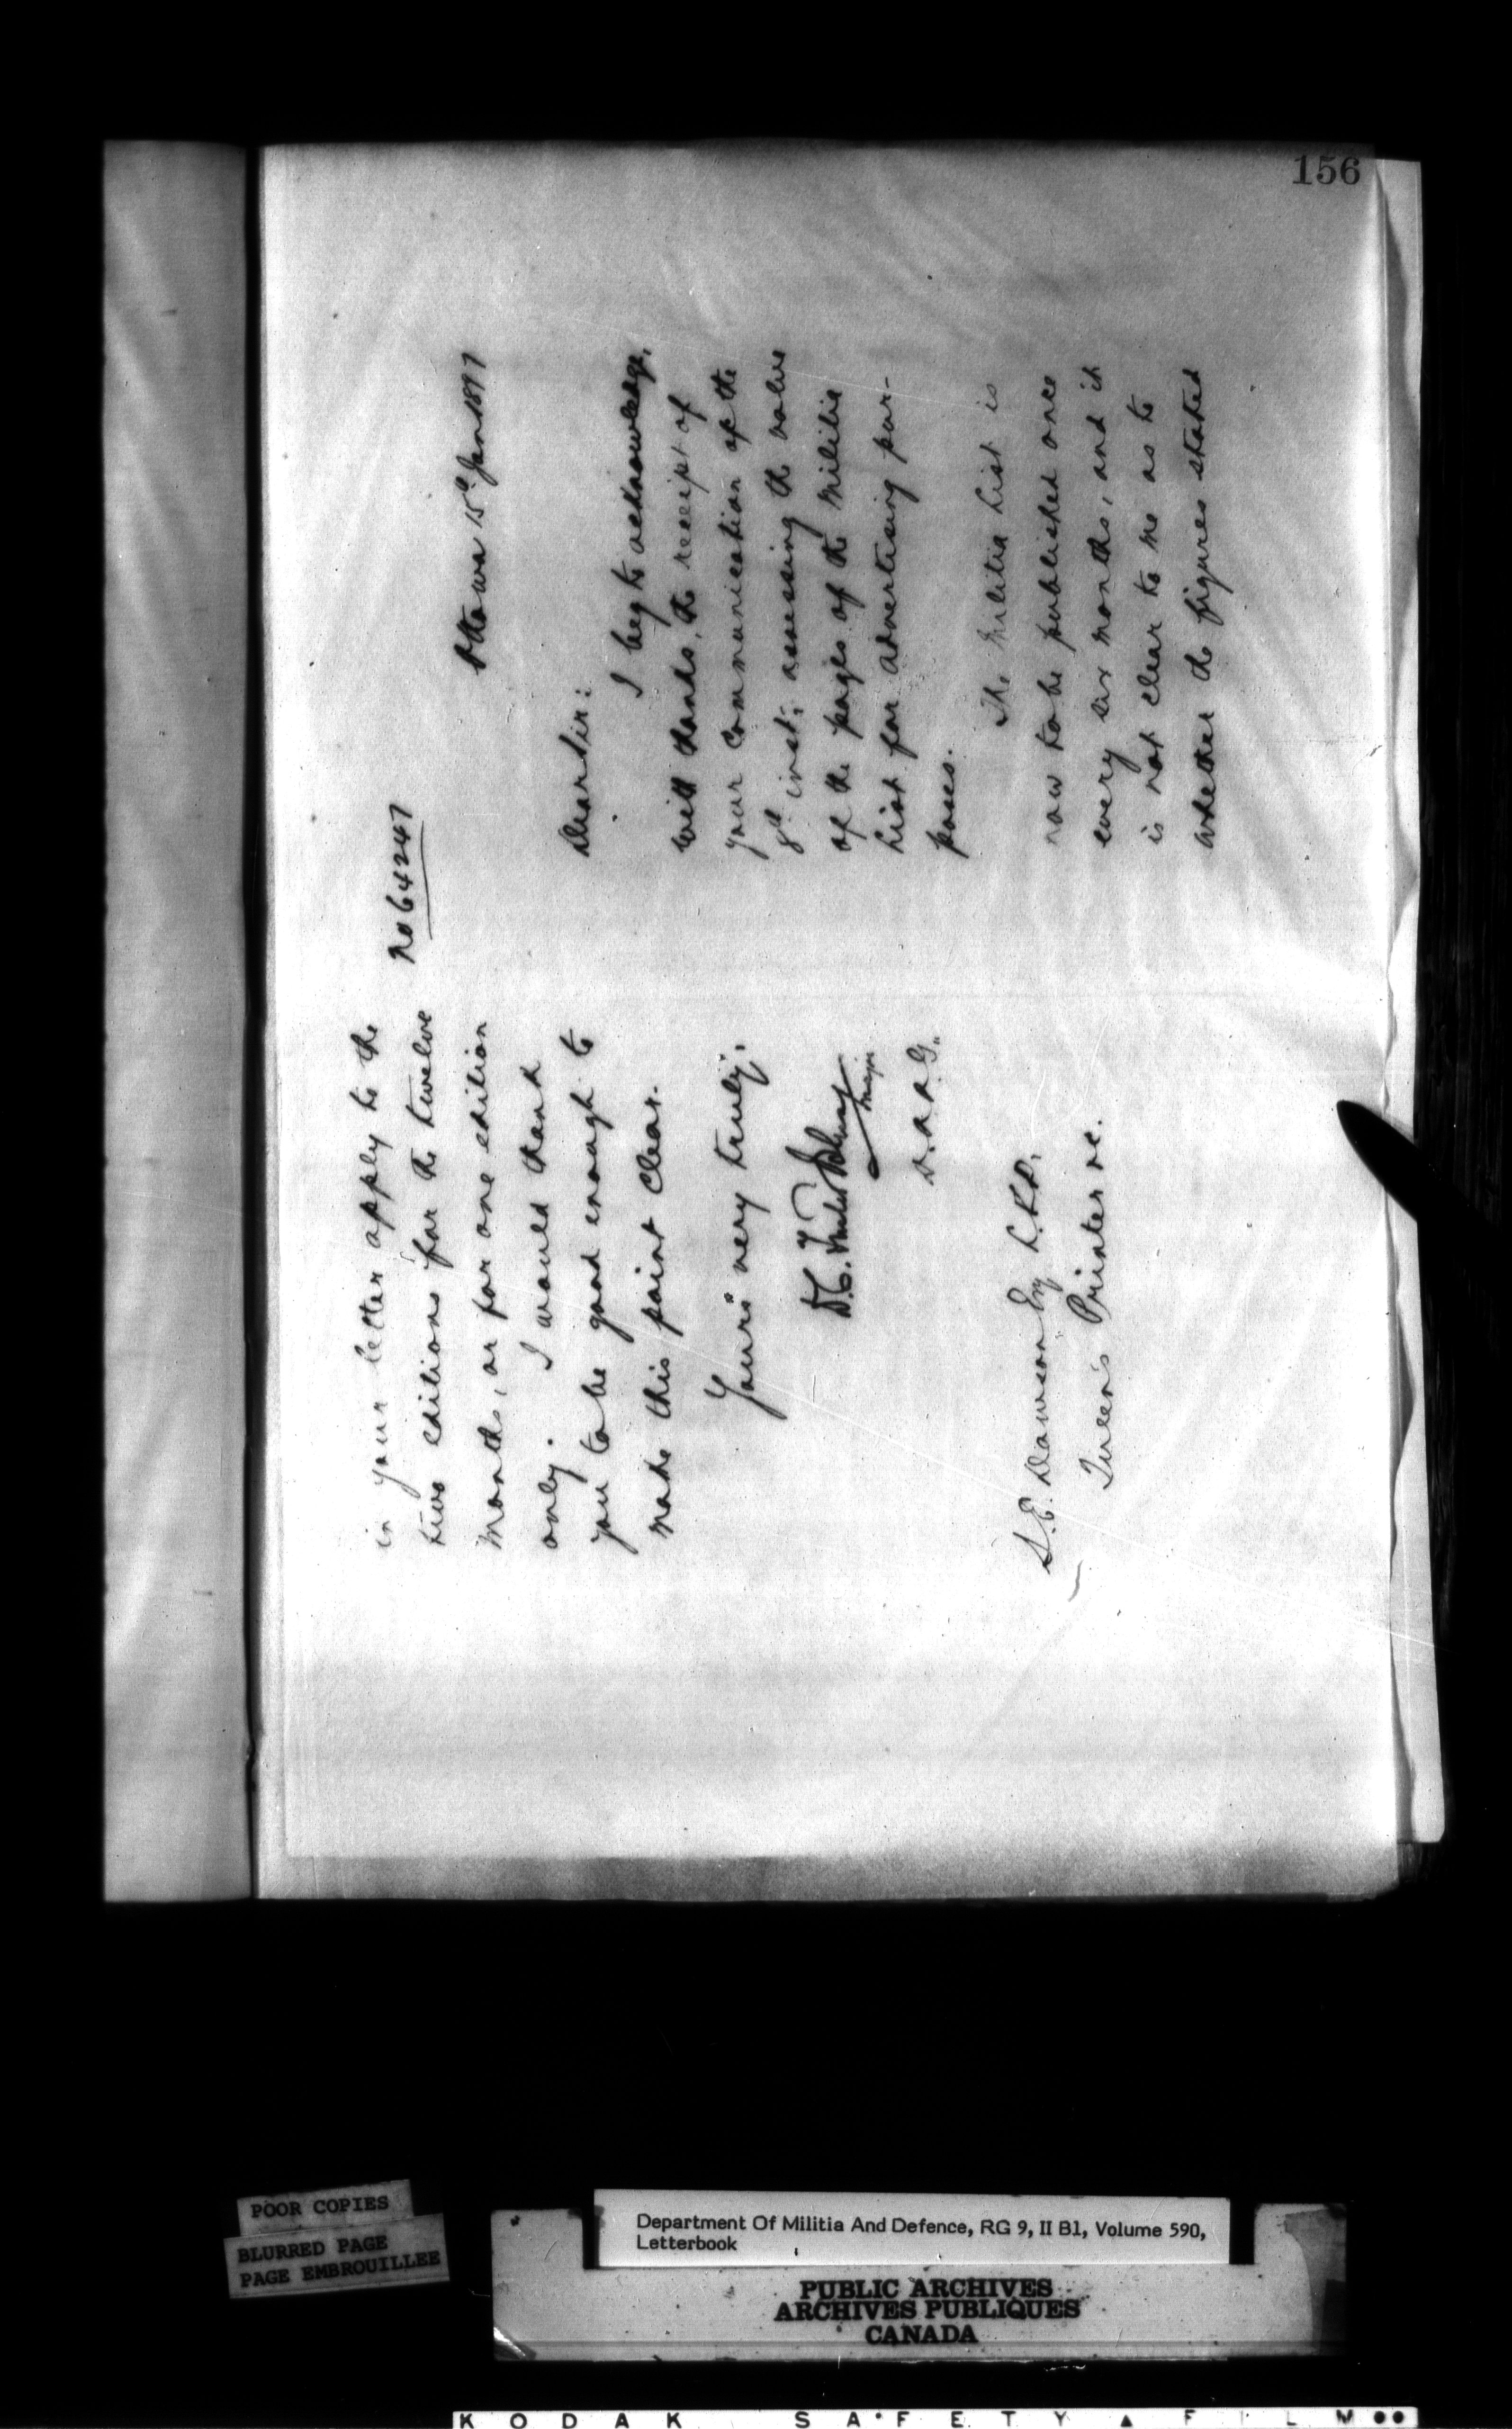 156
No 64247
Ottawa 15th Jan 1897
Dear Sir:
I beg to acknowledge,
with thanks, the receipt of
your communication of the
8th inst; assessing the value
of the pages of the Militia
List for advertising pur-
poses.
The Militia List is
now to be published once
every six months, and it
is not clear to me as to
whether the figures stated
in your letter apply to the
two editions for the twelve
months, or for one edition
only. I would thank
you to be good enough to
make this point clear.
Yours very truly,
D.C.
Major
D.A.A.G.
S.E. Dawson Esq L.L.D.
Queen's Printer &c.
POOR COPIES
BLURRED PAGE
PAGE EMBROUILLEE
Department Of Militia And Defence, RG 9, II B1, Volume 590,
Letterbook
PUBLIC ARCHIVES
ARCHIVES PUBLIQUES
CANADA
KODAK SAFETY FILM